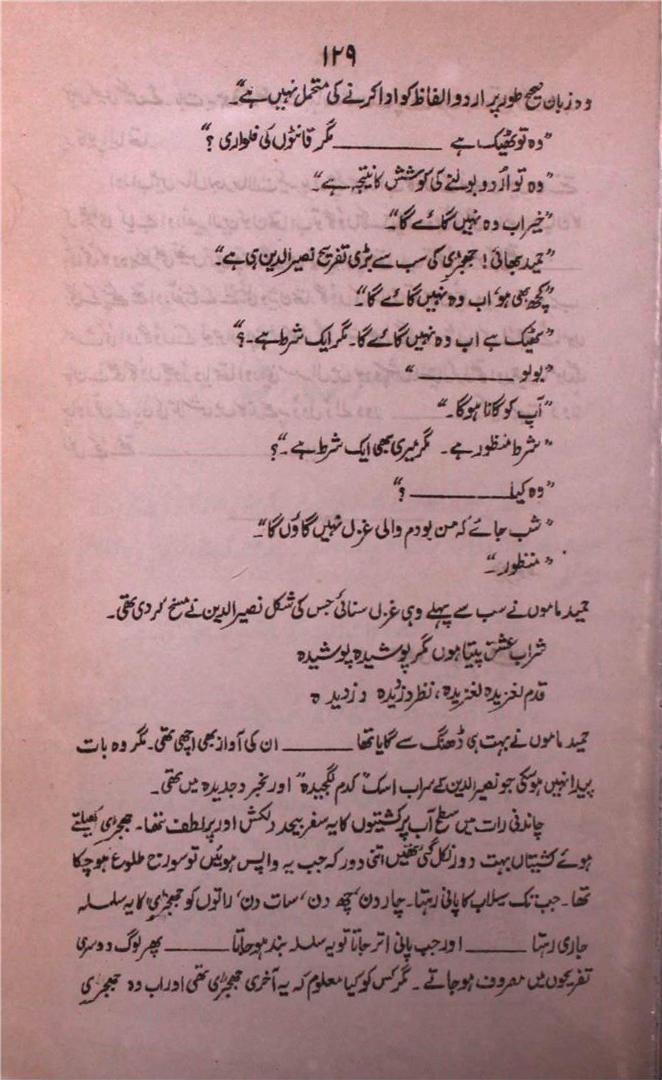 ۱۲۹
وہ زبان صحیح طور پر اردو الفاظ کو ادا کرنے کی متحمل نہیں ہے"۔
"وہ تو ٹھیک ہے ________ مگر قانٹوں کی فلواری ؟"
"وہ تو اُردو بولنے کی کوشش کا نتیجہ ہے"۔
"خیر اب وہ نہیں گائے گا"۔
"حمید بھائی! جھجڑی کی سب سے بڑی تفریح نصیر الدین ہی ہے"۔
"کچھ بھی ہو، اب وہ نہیں گائے گا"۔
"ٹھیک ہے اب وہ نہیں گائے گا۔ مگر ایک شرط ہے۔؟"
"بولو ________ "
"آپ کو گانا ہوگا۔"
"شرط منظور ہے۔ مگر میری بھی ایک شرط ہے۔"؟
"وہ کیا ________ ؟"
"شب جائے کہ من بودم والی غزل نہیں گاؤں گا"۔
"منظور۔"
حمید ماموں نے سب سے پہلے وہی غزل سنائی جس کی شکل نصیر الدین نے مسخ کر دی تھی۔
شراب عشق پیتا ہوں مگر پوشیدہ پوشیدہ
قدم لغزیدہ لغزیدہ، نظر دزدیدہ دزدیدہ
حمید ماموں نے بہت ہی ڈھنگ سے گایا تھا ________ ان کی آواز بھی اچھی تھی۔ مگر وہ بات
پیدا نہیں ہو سکی جو نصیر الدین کے سراب اسک" کدم لگجیدہ" اور نجر دجدیدہ میں تھی۔
چاندنی رات میں سطح آب پر کشتیوں کا یہ سفر بیحد دلکش اور پر لطف تھا۔ جھجڑی کھیلتے
ہوئے کشتیاں بہت دور نکل گئی تھیں اتنی دور کہ جب یہ واپس ہوئیں تو سورج طلوع ہو چکا
تھا۔ جب تک سیلاب کا پانی رہتا۔ چار دن، چھ دن، سات دن، راتوں کو جھجڑی کا یہ سلسلہ
جاری رہتا ________ اور جب پانی اتر جاتا تو یہ سلسلہ بند ہو جاتا ________ پھر لوگ دوسری
تفریحوں میں مصروف ہو جاتے۔ مگر کس کو کیا معلوم کہ یہ آخری جھجڑی تھی اور اب وہ جھجڑی